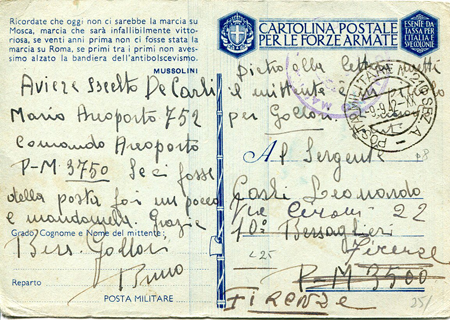 Ricordate che oggi non ci sarebbe la marcia su
Mosca, marcia che sarà infallibilmente vitto-
riosa, se venti anni prima non ci fosse stata la
marcia su Roma, se primi tra i primi non aves-
simo alzato la bandiera dell'antibolscevismo.
MUSSOLINI
Aviere scelto De Carli
Mario Aeroporto 752
Comando Aeroporto
P-M 3750 Se ci fosse
della posta fai un pacco
e mandamela. Grazie
Grado Cognome e Nome del mittente:
Bers. Gollori
Bruno
Reparto
POSTA MILITARE
CARTOLINA POSTALE
PER LE FORZE ARMATE
ESENTE DA
TASSA PER
L'ITALIA E
SUE COLONIE
Dietro alla lettera metti
il mittente e
per Gollori.
POSTA MILITARE N° 210 SEZ. A
Al Sergente
Leonardo
Via 22
10° Bersaglieri
Firenze
P-M 3500
FIRENZE
L25
251